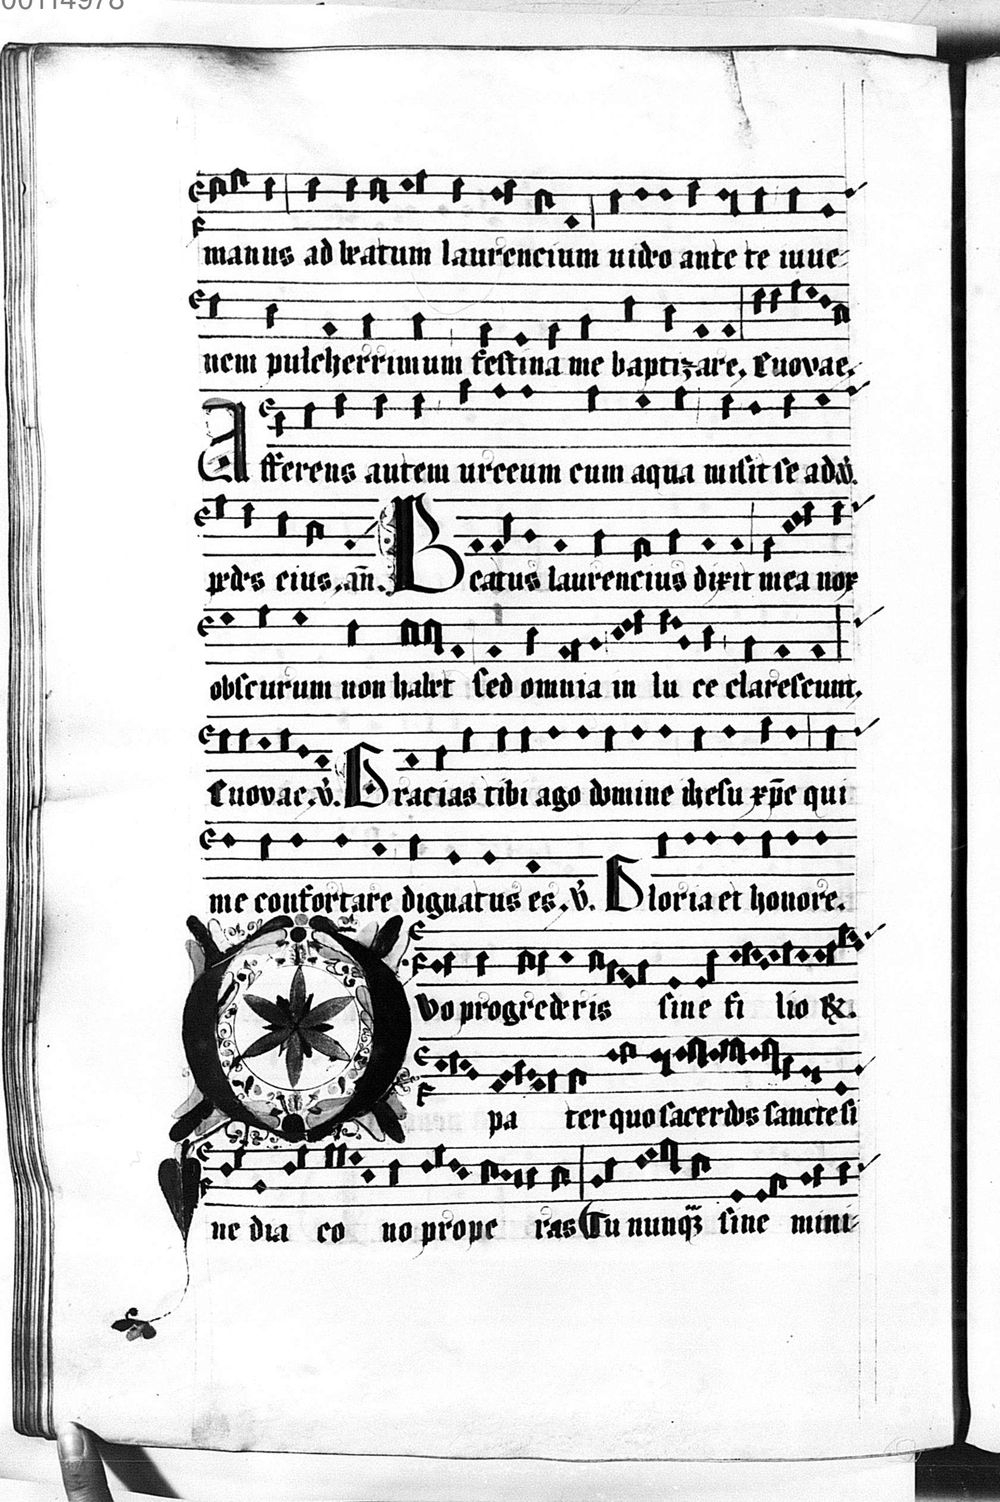 00114978
manus ad beatum laurencium uideo ante te iuue-
nem pulcherrimum festina me baptizare. Euovae.
Afferens autem urceum cum aqua misit se ad
pedes eius. an̄. Beatus laurencius dixit mea nox
obscurum non habet sed omnia in lu ce clarescunt.
Euovae. v̄. Gracias tibi ago domine ihesu xp̄e qui
me confortare dignatus es. v̄. Gloria et honore.
Quo progrederis sine fi lio R.
pa ter quo sacerdos sancte si
ne dia co no prope ras Tu nunqꝫ sine mini-